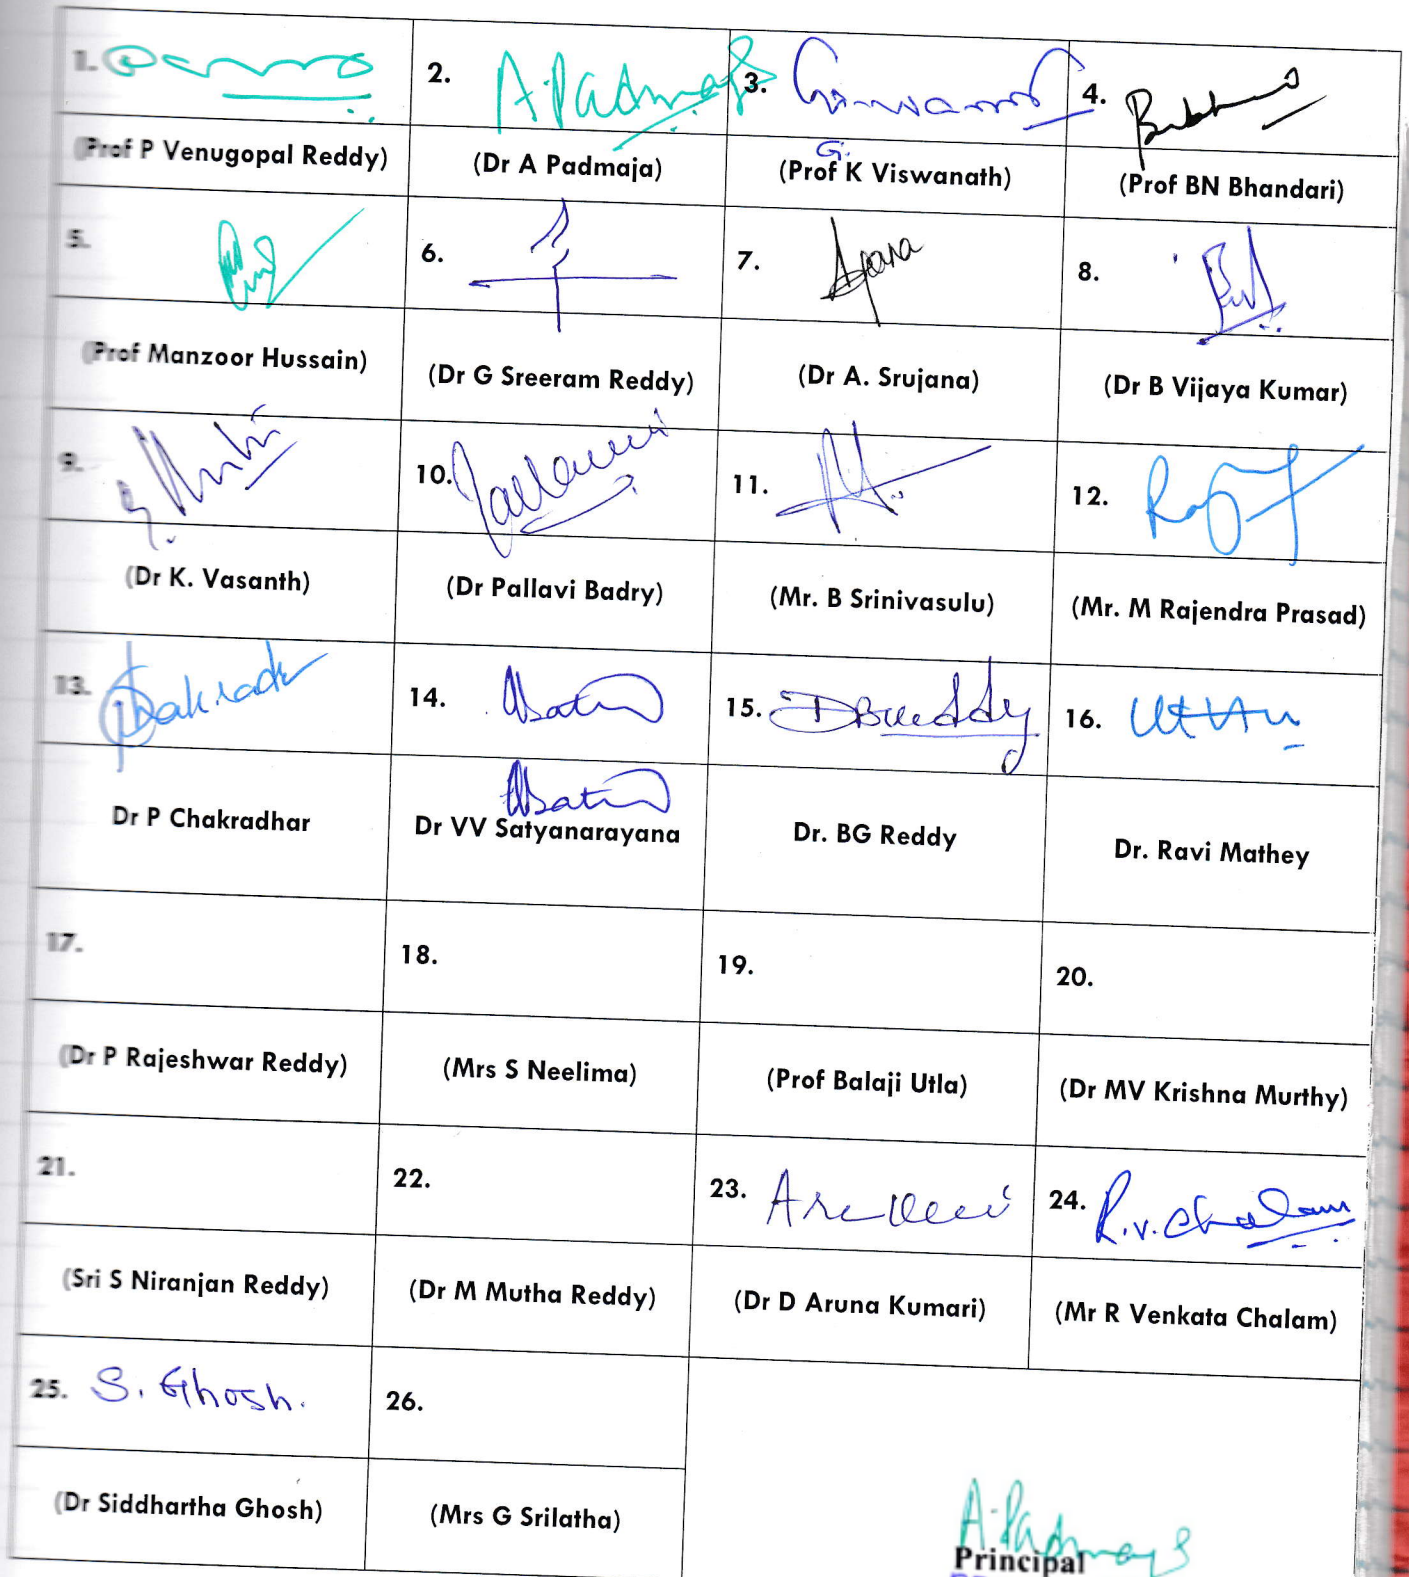 1.
2. A. Padmaja
3.
4.
(Prof P Venugopal Reddy)
(Dr A Padmaja)
G.
(Prof K Viswanath)
(Prof BN Bhandari)
5.
6.
7.
8.
(Prof Manzoor Hussain)
(Dr G Sreeram Reddy)
(Dr A. Srujana)
(Dr B Vijaya Kumar)
9.
10.
11.
12.
(Dr K. Vasanth)
(Dr Pallavi Badry)
(Mr. B Srinivasulu)
(Mr. M Rajendra Prasad)
13.
14.
15.
16.
Dr P Chakradhar
Dr VV Satyanarayana
Dr. BG Reddy
Dr. Ravi Mathey
17.
18.
19.
20.
(Dr P Rajeshwar Reddy)
(Mrs S Neelima)
(Prof Balaji Utla)
(Dr MV Krishna Murthy)
21.
22.
23.
24. R.V. Chalam
(Sri S Niranjan Reddy)
(Dr M Mutha Reddy)
(Dr D Aruna Kumari)
(Mr R Venkata Chalam)
25. S. Ghosh.
26.
(Dr Siddhartha Ghosh)
(Mrs G Srilatha)
A. Padmaja
Principal